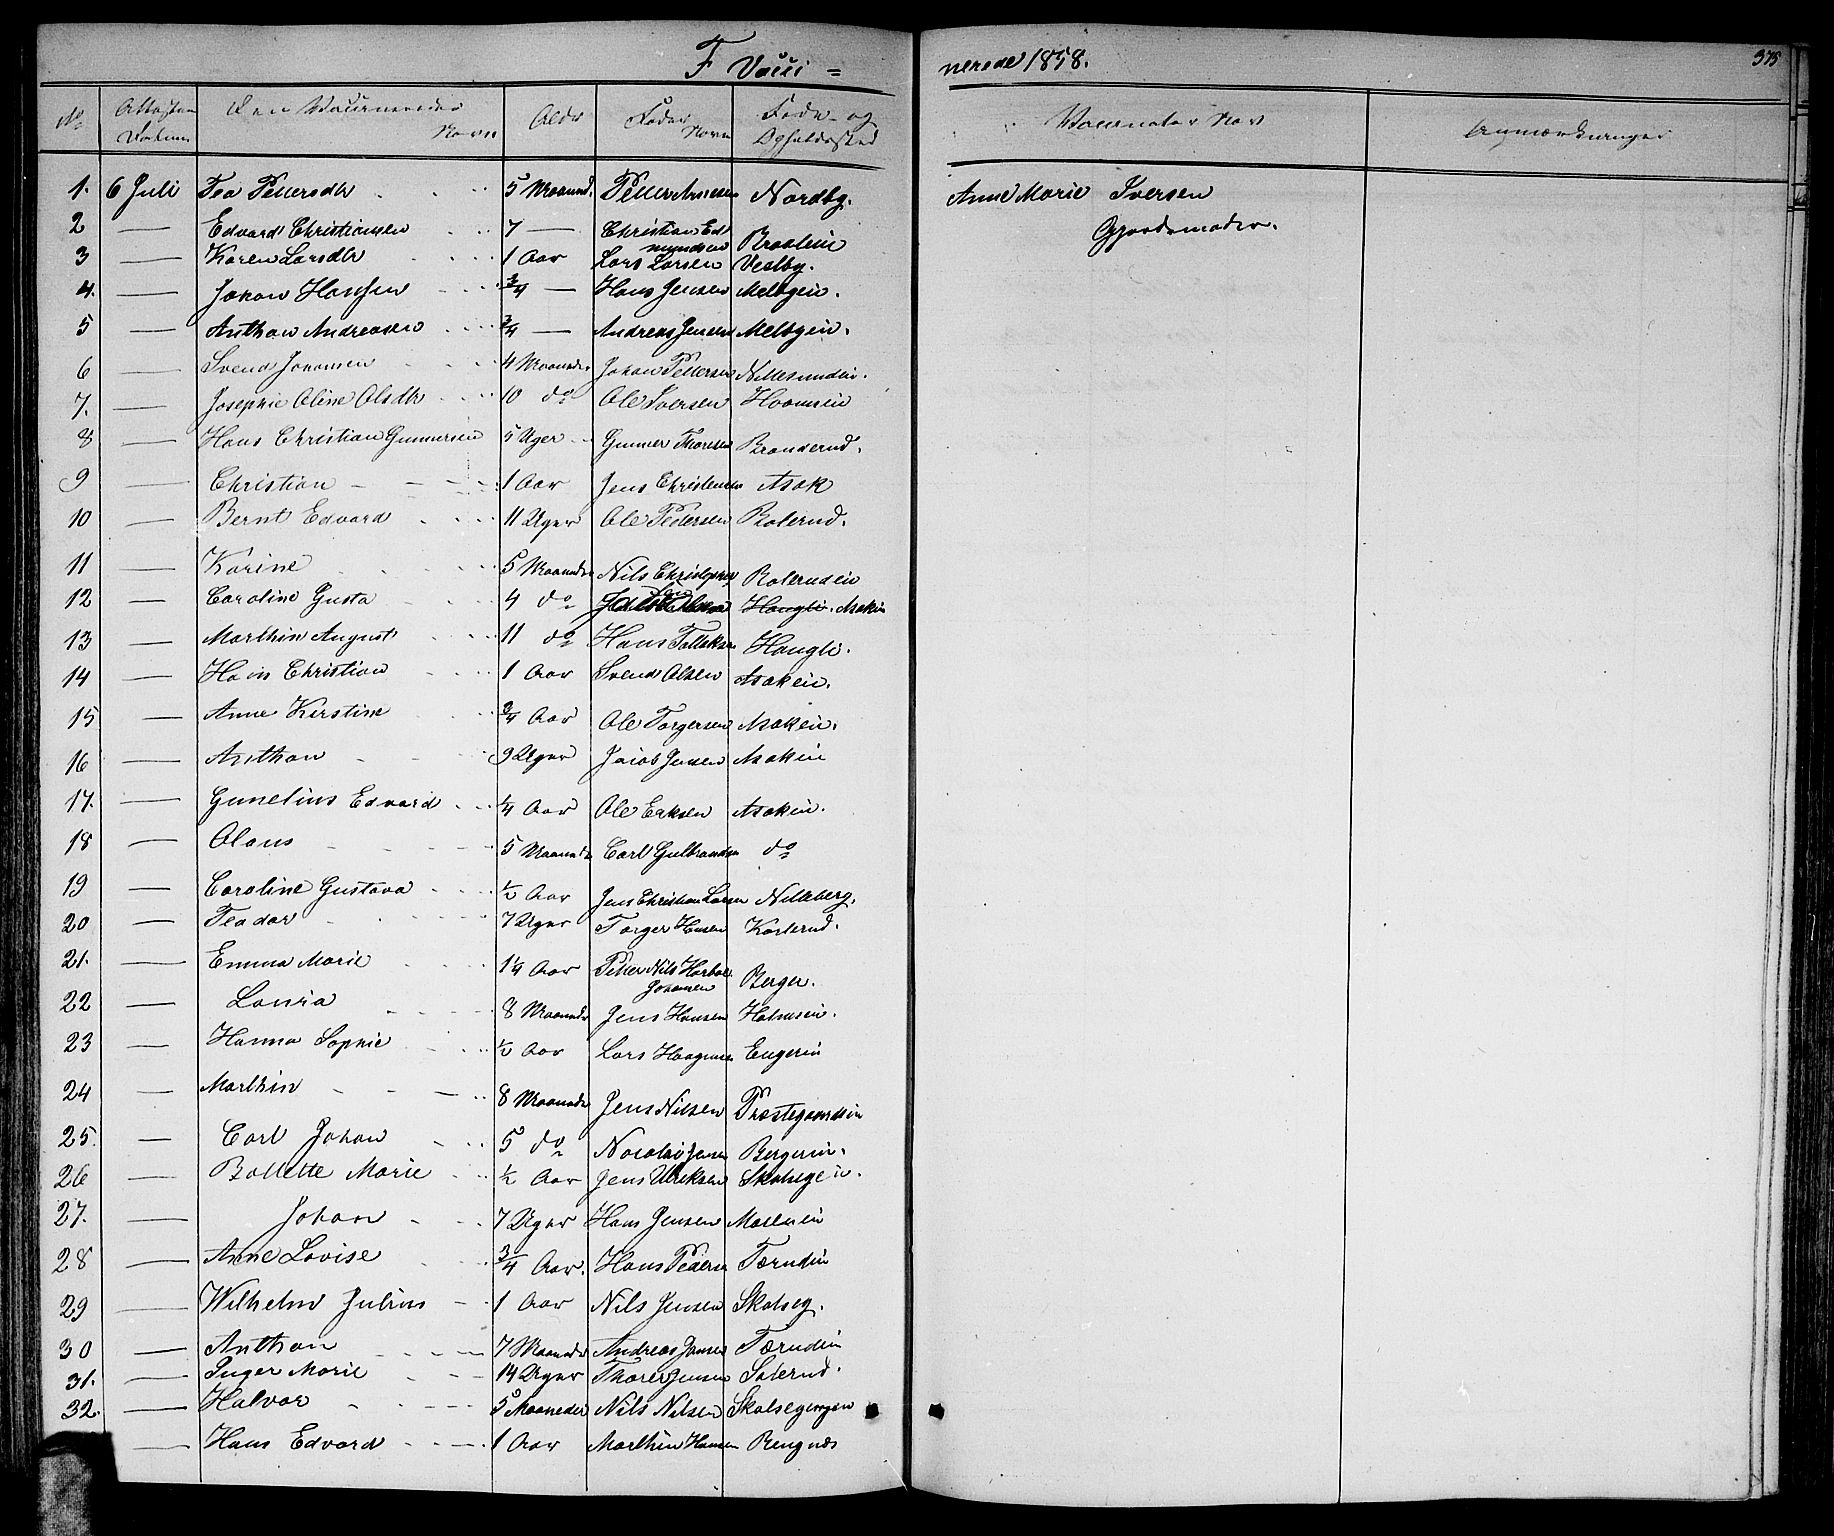 F Vacci = nerede 1858. 375
No Attesten Datum Den Vaccineredes Navn Alder Faders Navn Føde- og Opholdssted Vaccinator Navn Anmærkninger
1. 6 Juli Tea Pettersdtr 5 Maaned. Petter Arnesen Nordby. Anne Marie Iversen
2 — Edvard Christiansen 7 — Christian Edmundsen Braaten Gjordemoder.
3 — Karen Larsdtr 1 Aar Lars Larsen Vestby.
4. — Johan Hansen 3/4 — Hans Jensen Melbyein.
5 — Anthon Andreasen 3/4 — Andreas Jensen Melbyein.
6 — Svend Johansen 4 Maaneder Johan Pettersen Nillesundein.
7. — Josephie Oline Olsdtr 10 do Ole Iversen
8 — Hans Christian Gunnersen 5 Uger Gunner Thoresen Branderud.
9 — Christian 1 Aar Jens Christensen Asak
10 — Bernt Edvard 11 Uger Ole Pedersen Rolerud.
11 — Karine 5 Maaneder Nils Christophersen Rolerudein
12 — Caroline Gusta 4 do Haugli. Asakein
13 — Marthin August 11 do Hans Tollefsen Haugli.
14 — Hans Christian 1 Aar Svend Olsen Asakein.
15 — Anne Kirstine 3/4 Aar Ole Torgersen Asakein.
16 — Anthon 9 Uger Jacob Jensen Asakein
17. — Gunelius Edvard 1/4 Aar Ole Eriksen Asakein.
18 — Olaus 5 Maaneder Carl Gulbrandsen do
19 — Caroline Gustava 1/2 Aar Jens Christian Larsen Nilleberg.
20 — Teodor 7 Uger Torger Hansen Karlerud.
21. — Emma Marie 1 1/4 Aar Petter Nils Johansen Berger.
22 — Lovisa 8 Maaneder Jens Hansen Holmsein.
23 — Hanna Sophie 1/2 Aar Lars Haagensen Engerin
24 — Marthin 8 Maaneder Jens Nilsen Præstegaardsein
25. — Carl Johan 5 do Nicolai Jensen Bergerein.
26 — Bollette Marie 1/2 Aar Jens Ulriksen Skalsegein.
27. — Johan 7 Uger Hans Jensen
28 — Anne Lovise 3/4 Aar. Hans Pedersen Tærudein
29 — Wilhelm Julius 1 Aar Nils Jensen Skalseg.
30 — Anthon 7 Maaneder Andreas Jansen Tærudein
31. — Inger Marie 14 Uger Thorer Jensen Solerud.
32. — Halvor 5 Maaneder Nils Nilsen Skalsegengen
— Hans Edvard 1 Aar Marthin Hansen Rengnæs